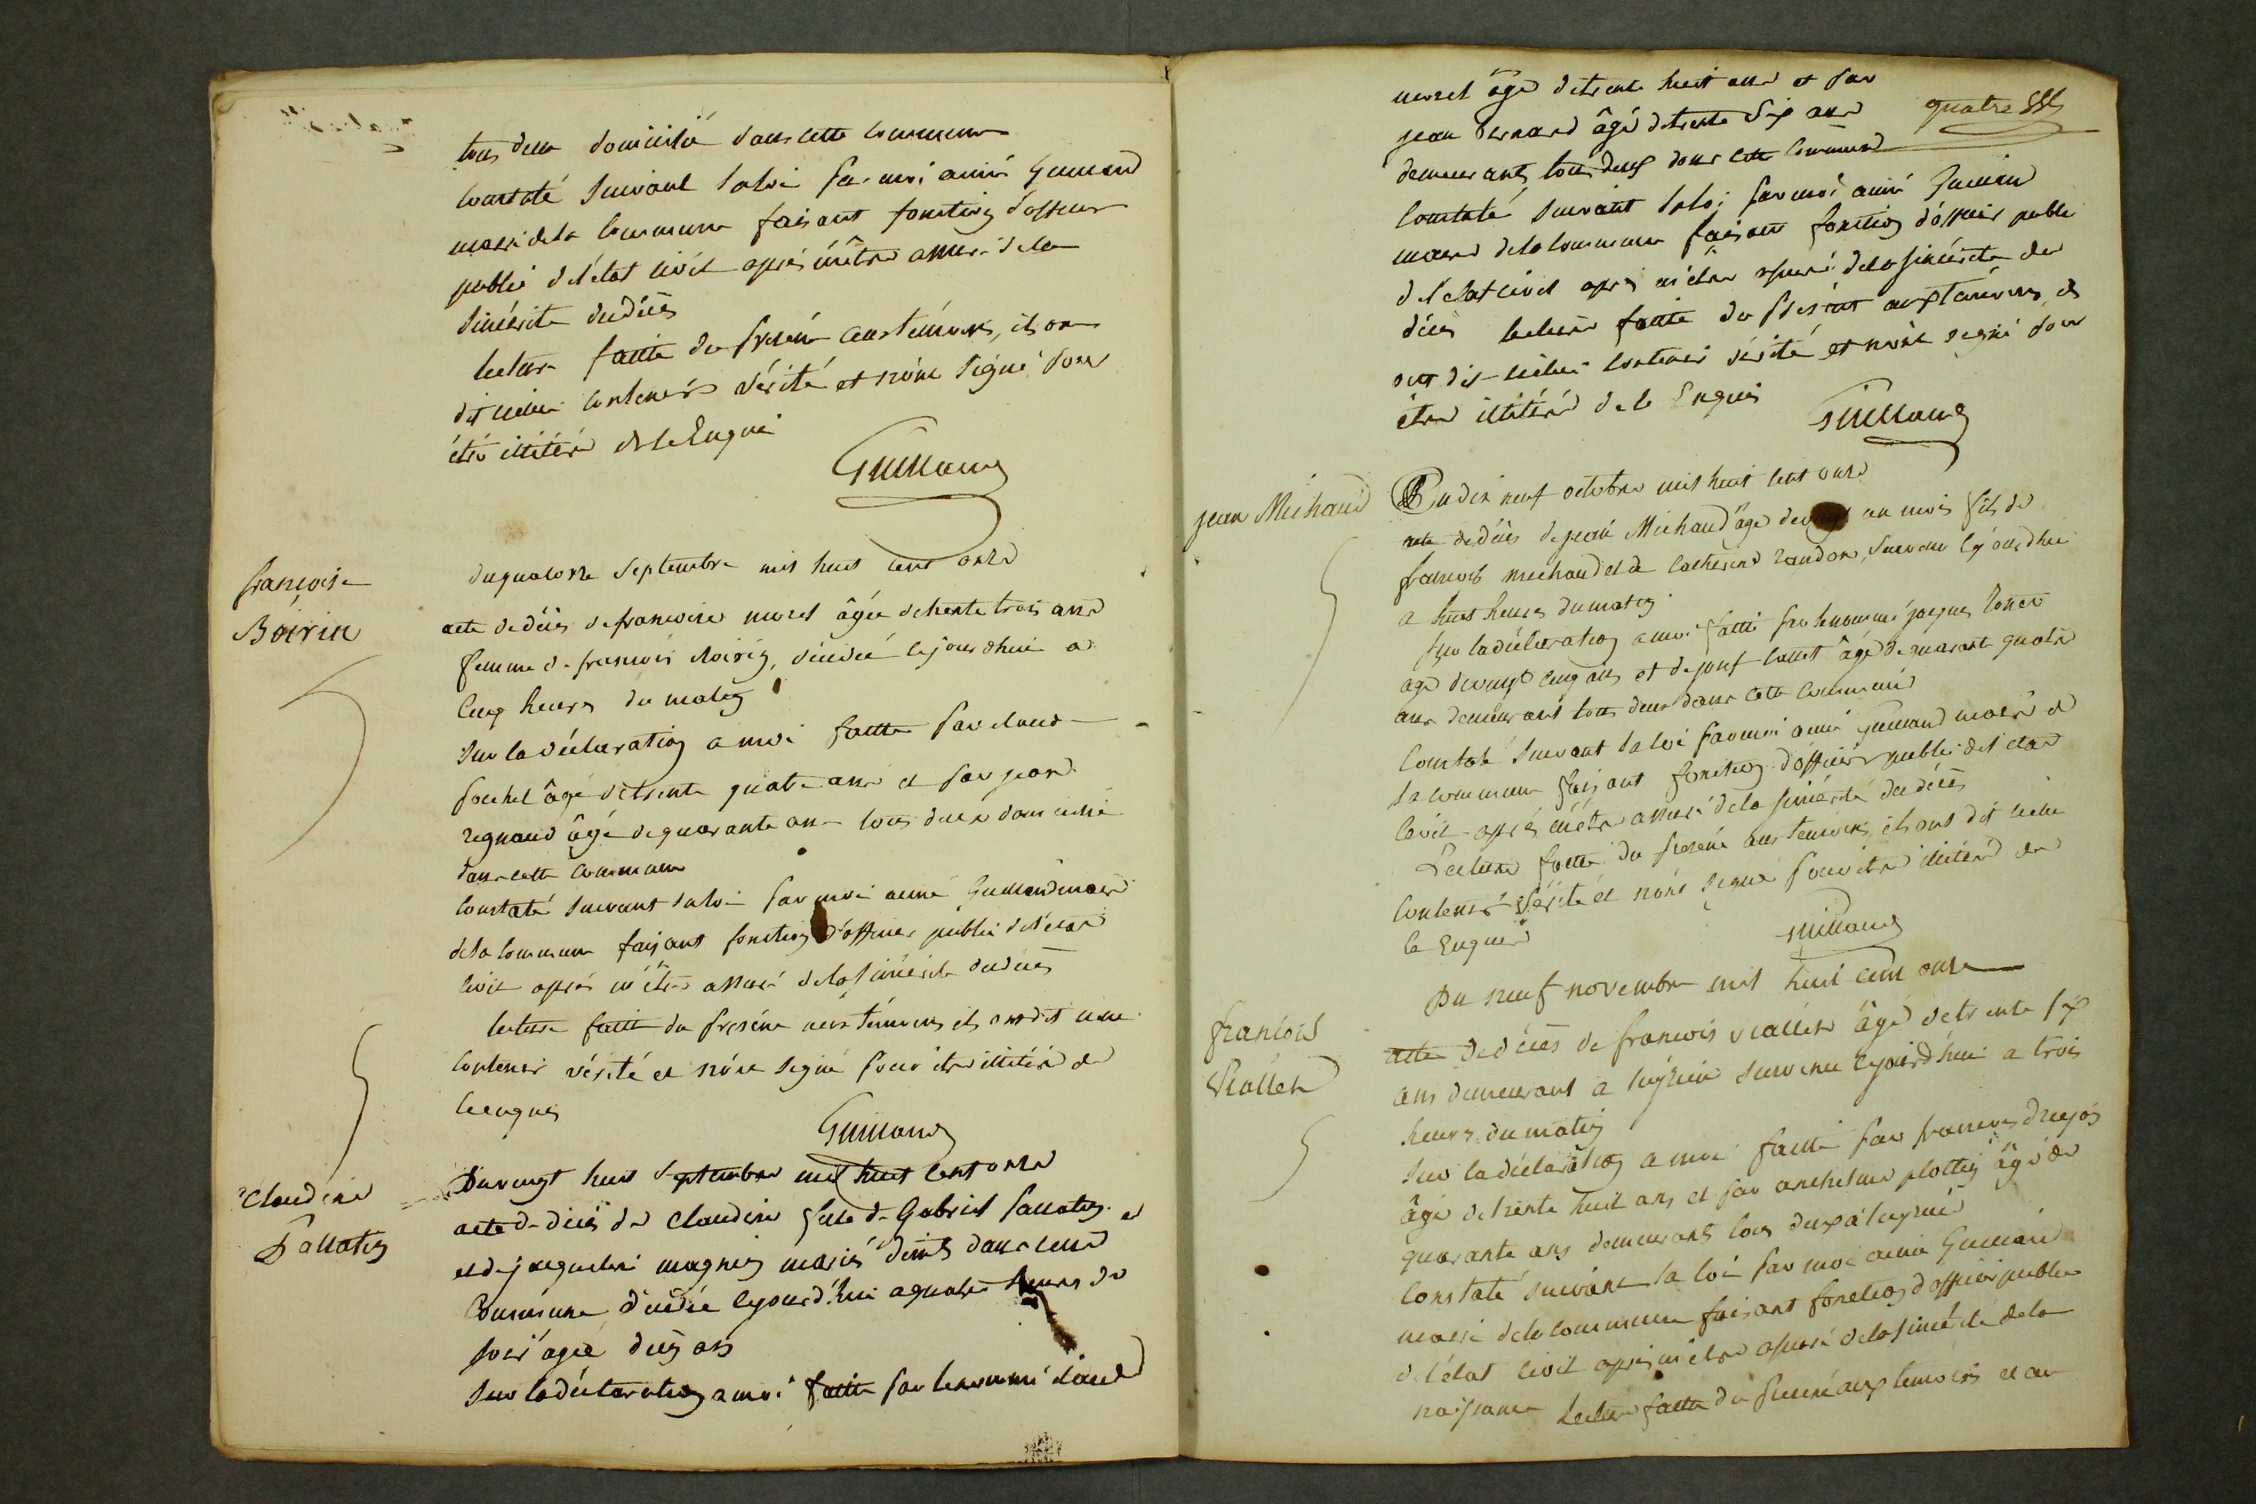 tous deux domicilié dans cette commune
constaté suivant la loi par moi aimé Guilland
maire de la commune faisant fonction d'officier
public de l'état civil après m'être assuré de la
sincérité du décès
lecture faitte du présent aux témoins, ils ont
dit icelui contenir vérité et n'ont signé pour
être illitéré de le Enquis
Guilland
françoise
Boirin
du quatorze septembre mil huit cent onze
acte de décès de francoise morel âgée de trente trois ans
femme de françois Boirin, décédée cejourdhui a
cinq heures du matin
sur la déclaration a moi faitte par claude
pochet âgé de trente quatre ans et par jean
regnaud âgé de quarante ans tous deux domicilié
dans cette commune
constaté suivant la loi par moi aimé Guilland maire
de la commune faisant fonction d'officier public de l'état
civil après m'être assuré de la sincérité du décès
lecture faitte du présent aux témoins ils ont dit icelui
contenir vérité et n'ont signé pour être illitéré de
le enquis
Guilland
Claudine
Pallatin
Du vingt huit septembre mil huit cent onze
acte de décès de Claudine fille de Gabriel Pallatin
et de jacqueline magnin mariés dans cette
Commune, décédée cejourd'hui a quatre heures du
soir âgée dix ans
sur la déclaration a moi faitte par le nommé Claude
morel âgé de trente huit ans et par
jean Bernard âgé de trente six ans
quatre
demeurants tous deux dans cette commune
constaté suivant la loi par moi aimé Guilland
maire de la commune faisant fonction d'officier public
de l'état civil après m'être assuré de la sincérité du
décès lecture faitte du présent aux témoins, ils
ont dit icelui contenir vérité et n'ont signé pour
être illitéré de le Enquis
Guilland
jean Michaud
Du dix neuf octobre mil huit cent onze
acte de décès de jean Michaud âgé de un mois fils de
françois michaud et de catherine randon, survenu cejourdhui
a huit heures du matin
sur la déclaration a moi faitte par le nommé jacques
agé de vingt cinq ans et de âgé de quarante quatre
ans demeurants tous deux dans cette commune
Constaté suivant la loi par moi aimé Guilland maire de
la commune faisant fonction d'officier public de l'état
civil après m'être assuré de la sincérité du décès
Lecture faitte du présent aux temoins, ils ont dit icelui
contenir vérité et n'ont signé pour être illitéré de
le Enquis
Guilland
francois
Viallet
Du neuf novembre mil huit cent onze
acte de décès de francois viallet âgé de trente six
ans demeurant a survenu cejourd'hui a trois
heures du matin
sur la déclaration a moi faitte par francois
âgé de trente huit ans et par anthelme plottin âgé de
quarante ans demeurants tous deux a
Constaté suivant la loi par moi aimé Guilland
maire de la commune faisant fonction d'officier public
de l'état civil après m'être assuré de la sincérité de la
naissance Lecture faitte du présent aux temoins et au